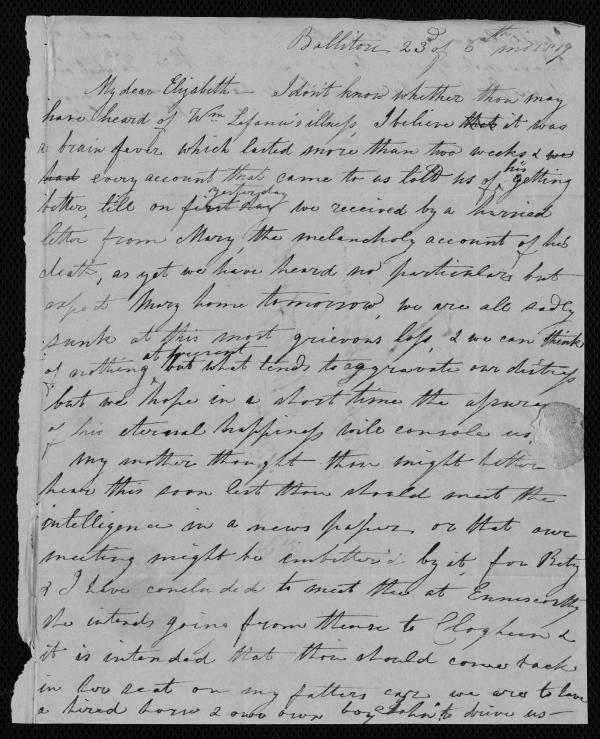 Ballitore 23d of 6th mo 1819
My dear Elizabeth - I don't know whether thou may
have heard of Wm Lefanu's illness, I believe that it was
a brain fever which lasted more than two weeks & we
had every account that came to us told us of his getting
better, till on first day yesterday we received by a hurried
letter from Mary, the melancholy account of his
death, as yet we have heard no particulars but
expect Mary home tomorrow, we are all sadly
sunk at this most grievous loss, & we can think
of nothing at present but what tends to aggravate our distress
but we hope in a short time the assurance
of his eternal happiness will console us.
My mother thought thou might better
hear this soon lest thou should meet the
intelligence in a news paper or that our
meeting might be imbitter'd by it, for Betsy
& I have concluded to meet thee at Enniscorthy
she intends going from thence to Clogheen &
it is intended that thou should come back
in her seat on my fathers car, we are to have
a hired horse & our own boy John to drive us -